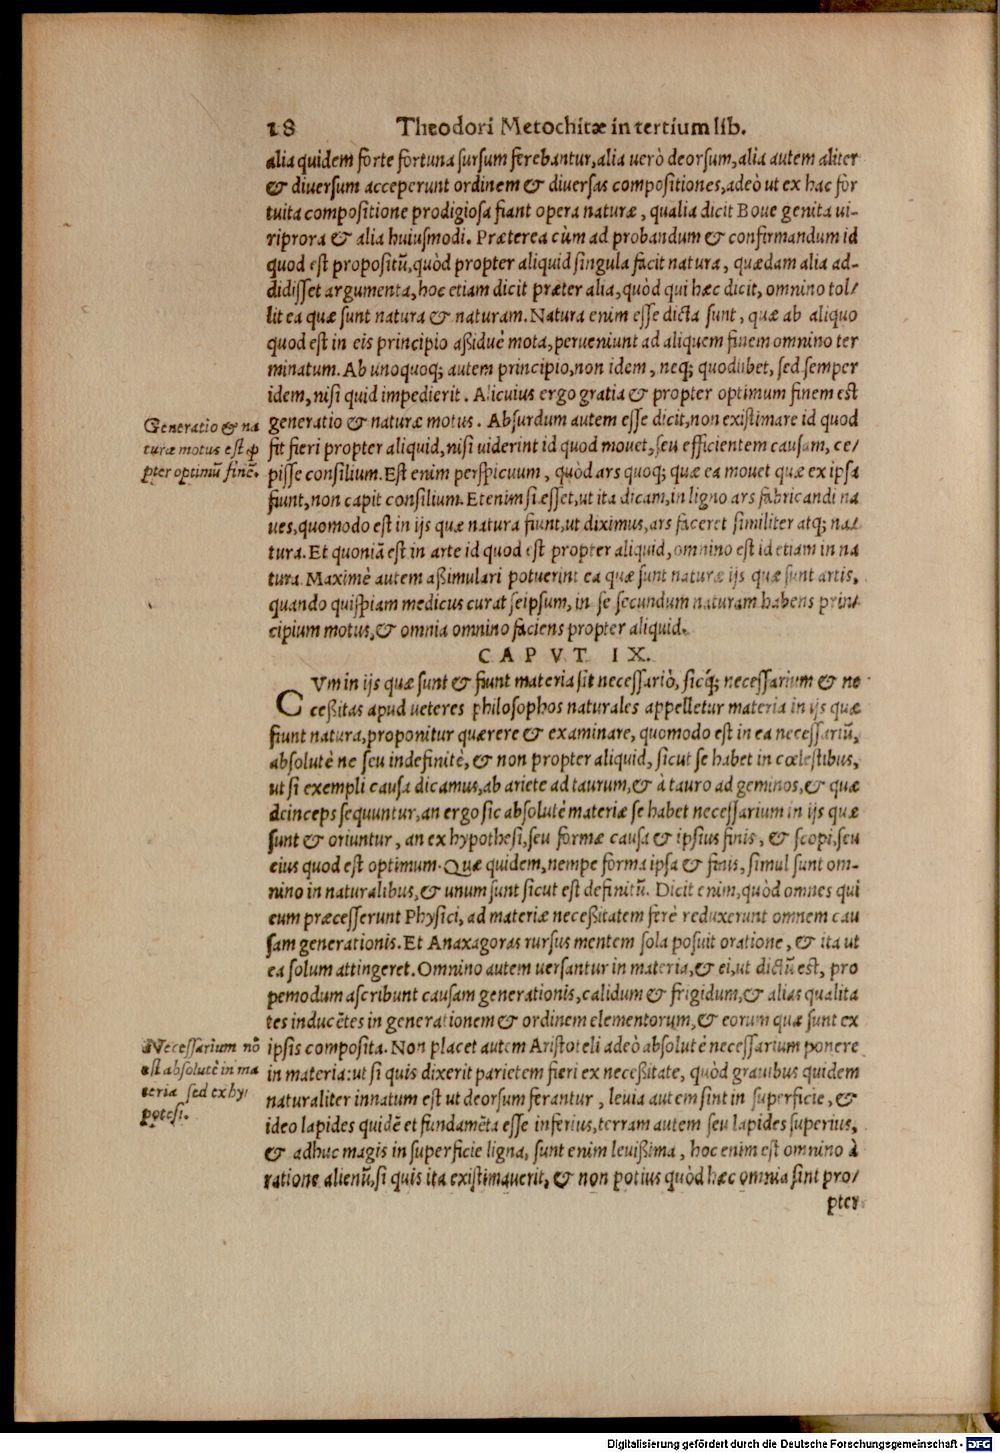 18 Theodori Metochitæ in tertium lib.
alia quidem forte fortuna sursum ferebantur, alia uerò deorsum, alia autem aliter
& diuersum acceperunt ordinem & diuersas compositiones, adeò ut ex hac for
tuita compositione prodigiosa fiant opera naturæ, qualia dicit Boue genita ui-
riprora & alia huiusmodi. Præterea cùm ad probandum & confirmandum id
quod est propositũ, quòd propter aliquid singula facit natura, quædam alia ad-
didisset argumenta, hoc etiam dicit præter alia, quòd qui hæc dicit, omnino tol/
lit ea quæ sunt natura & naturam. Natura enim esse dicta sunt, quæ ab aliquo
quod est in eis principio aßiduè mota, perueniunt ad aliquem finem omnino ter
minatum. Ab unoquoq; autem principio, non idem, neq; quodlibet, sed semper
idem, nisi quid impedierit. Alicuius ergo gratia & propter optimum finem est
generatio & naturæ motus. Absurdum autem esse dicit, non existimare id quod
fit fieri propter aliquid, nisi uiderint id quod mouet, seu efficientem causam, ce/
pisse consilium. Est enim perspicuum, quòd ars quoq; quæ ea mouet quæ ex ipsa
fiunt, non capit consilium. Etenim si esset, ut ita dicam, in ligno ars fabricandi na
ues, quomodo est in ijs quæ natura fiunt, ut diximus, ars faceret similiter atq; na/
tura. Et quoniã est in arte id quod est propter aliquid, omnino est id etiam in na
tura. Maximè autem aßimulari potuerint ea quæ sunt naturæ ijs quæ sunt artis,
quando quispiam medicus curat seipsum, in se secundum naturam habens prin/
cipium motus, & omnia omnino faciens propter aliquid.
Generatio & na
turæ motus est ꝓ
pter optimũ finẽ.
CAPVT IX.
CVm in ijs quæ sunt & fiunt materia sit necessariò, sicq́; necessarium & ne
ceßitas apud ueteres philosophos naturales appelletur materia in ijs quæ
fiunt natura, proponitur quærere & examinare, quomodo est in ea necessariũ,
absolutè ne seu indefinitè, & non propter aliquid, sicut se habet in cœlestibus,
ut si exempli causa dicamus, ab ariete ad taurum, & à tauro ad geminos, & quæ
deinceps sequuntur, an ergo sic absolutè materiæ se habet necessarium in ijs quæ
sunt & oriuntur, an ex hypothesi, seu formæ causa & ipsius finis, & scopi, seu
eius quod est optimum. Quæ quidem, nempe forma ipsa & finis, simul sunt om-
nino in naturalibus, & unum sunt sicut est definitũ. Dicit enim, quòd omnes qui
eum præcesserunt Physici, ad materiæ neceßitatem ferè reduxerunt omnem cau
sam generationis. Et Anaxagoras rursus mentem sola posuit oratione, & ita ut
ea solum attingeret. Omnino autem uersantur in materia, & ei, ut dictũ est, pro
pemodum ascribunt causam generationis, calidum & frigidum, & alias qualita
tes inducẽtes in generationem & ordinem elementorum, & eorum quæ sunt ex
ipsis composita. Non placet autem Aristoteli adeò absolutè necessarium ponere
in materia: ut si quis dixerit parietem fieri ex neceßitate, quòd grauibus quidem
naturaliter innatum est ut deorsum ferantur, leuia autem sint in superficie, &
ideo lapides quidẽ et fundamẽta esse inferius, terram autem seu lapides superius,
& adhuc magis in superficie ligna, sunt enim leuißima, hoc enim est omnino à
ratione alienũ, si quis ita existimauerit, & non potius quòd hæc omnia sint pro/
pter
Necessarium nõ
est absolutè in ma
teria sed ex hy/
potesi.
Digitalisierung gefördert durch die Deutsche Forschungsgemeinschaft - DFG